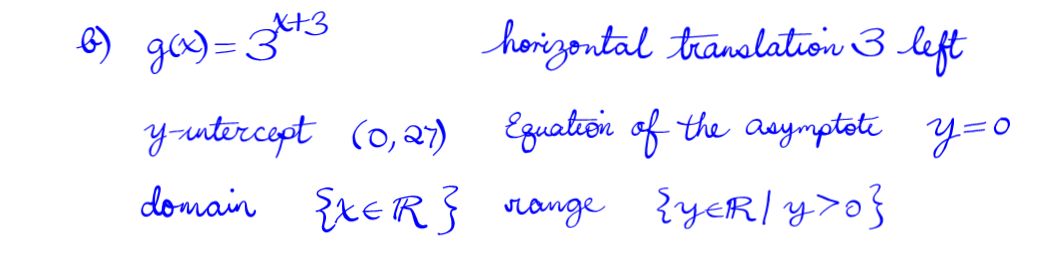 b) g(x) = 3^{x+3} horizontal translation 3 left
y-intercept (0, 27) Equation of the asymptote y=0
domain {x∈ℝ} range {y∈ℝ | y>0}